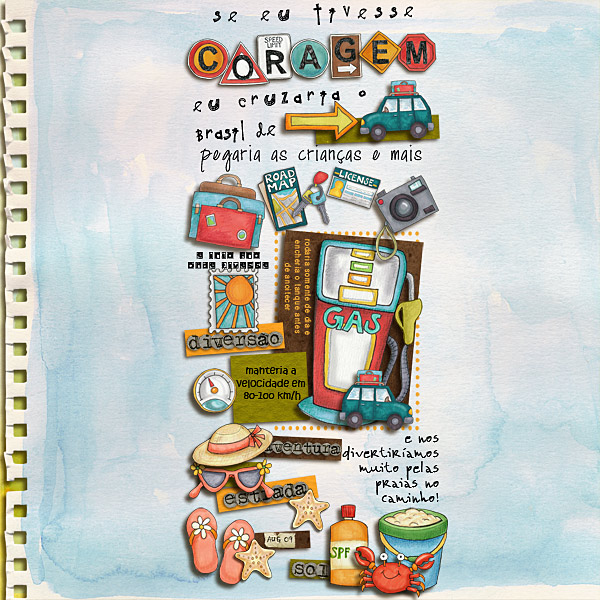 se eu tivesse
CORAGEM
SPEED LIMIT
eu cruzaria o
Brasil de
pegaria as crianças e mais
ROAD MAP
LICENSE
rodaria somente de dia e
encheria o tanque antes
de anoitecer
GAS
diversão
manteria a
velocidade em
80-100 km/h
aventura
e nos
divertiríamos
muito pelas
praias no
caminho!
estrada
AUG 09
SPF
sol